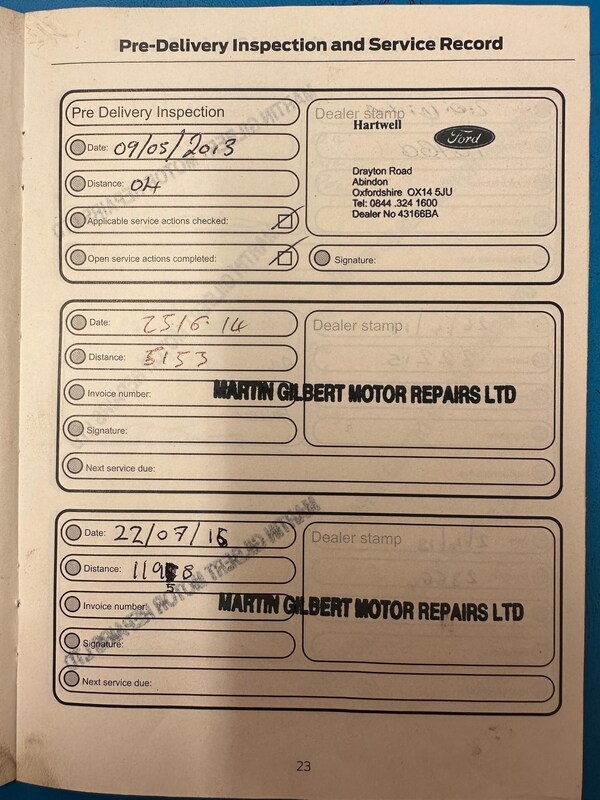 Pre-Delivery Inspection and Service Record
Pre Delivery Inspection
Date: 09/05/2013
Distance: 04
Applicable service actions checked:
Open service actions completed:
Dealer stamp
Hartwell
Ford
Drayton Road
Abindon
Oxfordshire OX14 5JU
Tel: 0844 .324 1600
Dealer No 43166BA
Signature:
Date: 25/6·14
Distance: 5153
Invoice number:
Signature:
Next service due:
Dealer stamp
MARTIN GILBERT MOTOR REPAIRS LTD
Date: 22/07/
Distance:
Invoice number:
Signature:
Next service due:
Dealer stamp
MARTIN GILBERT MOTOR REPAIRS LTD
23